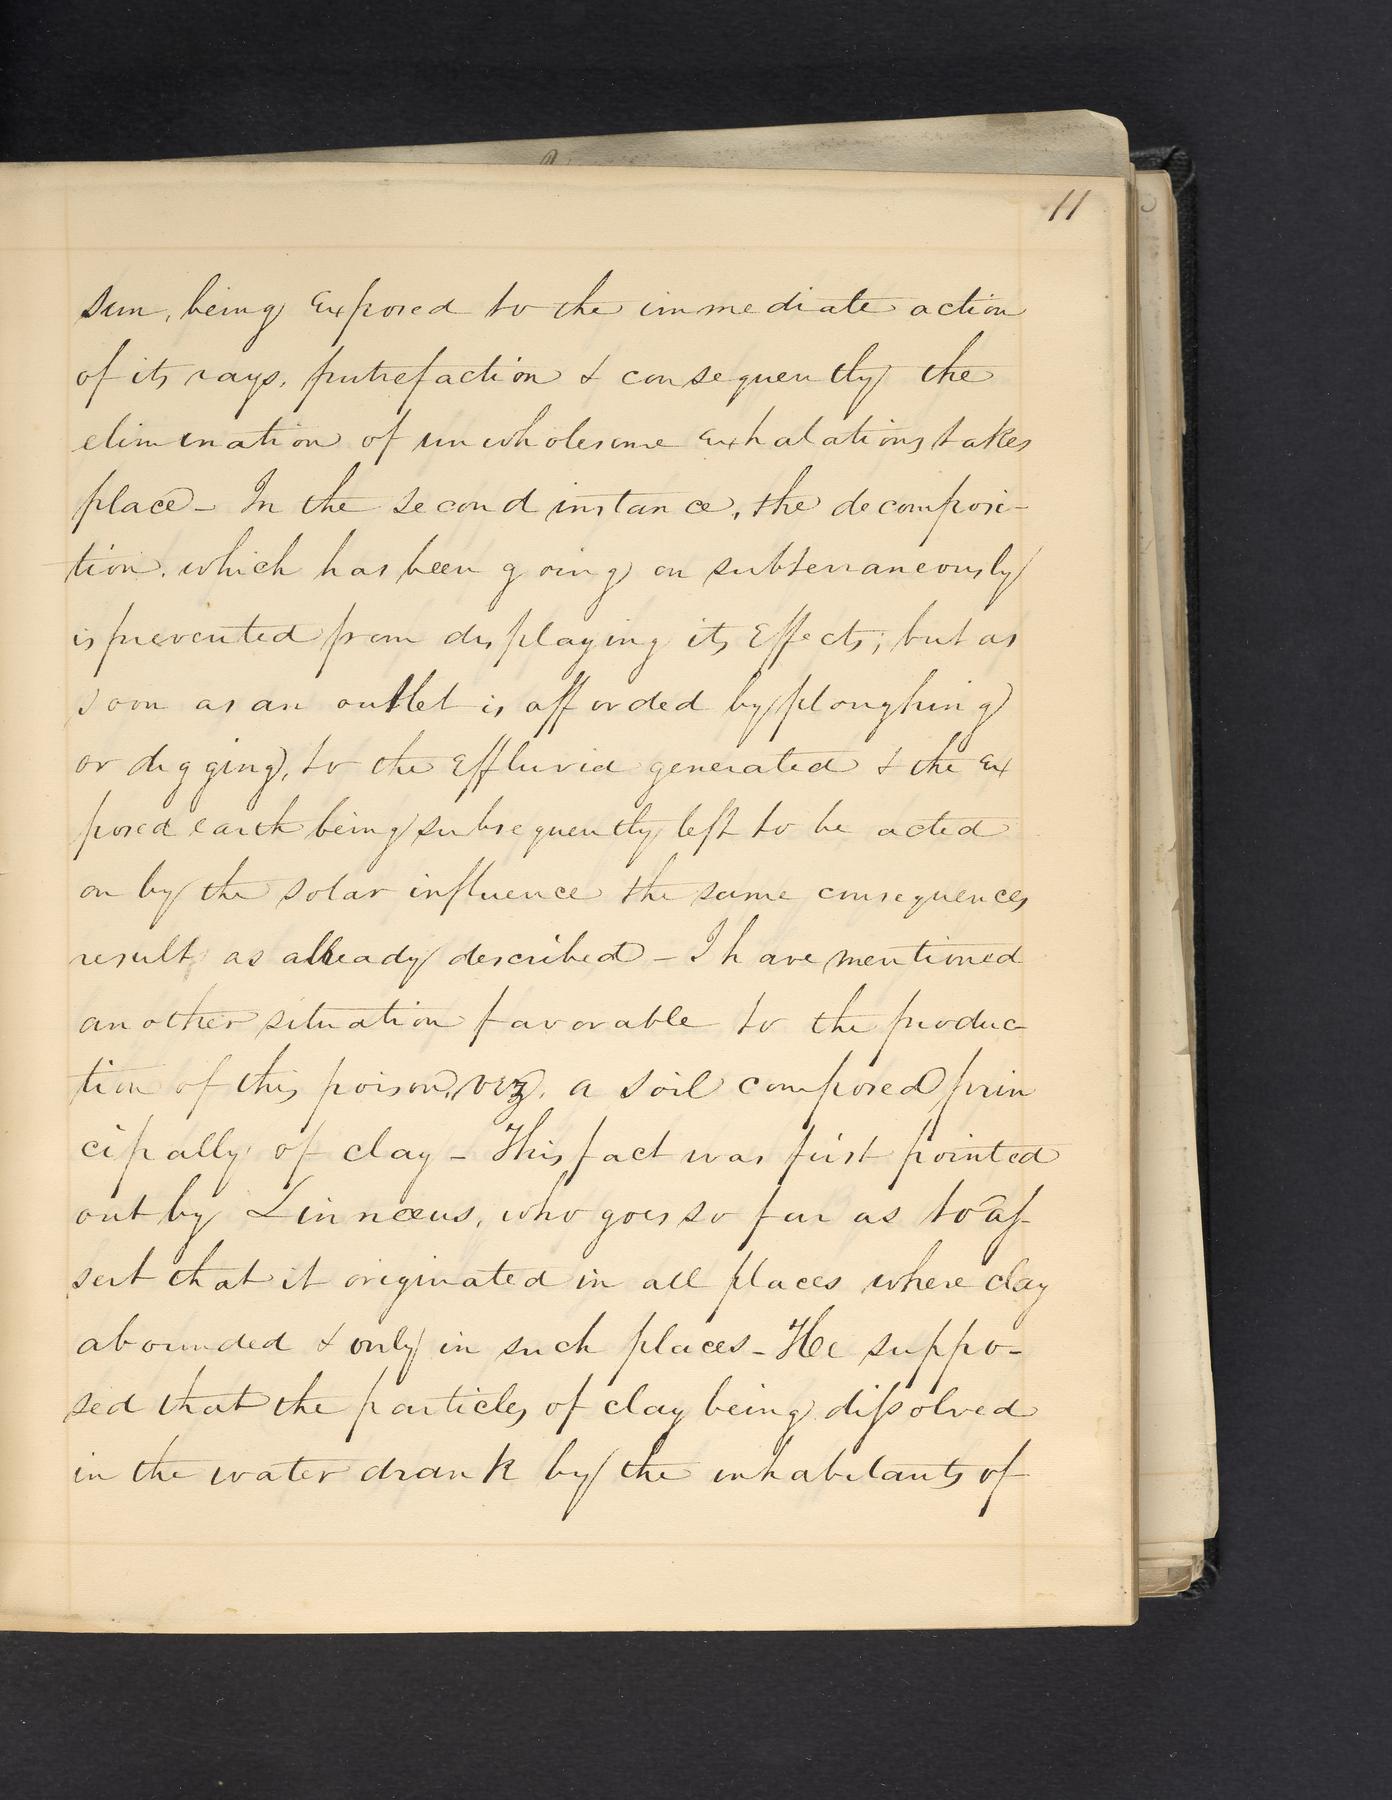 11
sun, being exposed to the immediate action
of its rays, putrefaction & consequently the
elimination of unwholesome exhalations takes
place - In the second instance, the decomposi-
tion, which has been going on subterraneously
is prevented from displaying its effects; but as
soon as an outlet is afforded by ploughing
or digging, to the effluvia generated & the ex
posed earth being subsequently left to be acted
on by the solar influence the same consequences
result as already described - I have mentioned
another situation favorable to the produc-
tion of this poison, viz, a soil composed prin
cipally of clay - This fact was first pointed
out by Linnæus, who goes so far as to as-
sert that it originated in all places where clay
abounded & only in such places - He suppo-
sed that the particles of clay being dissolved
in the water drank by the inhabitants of